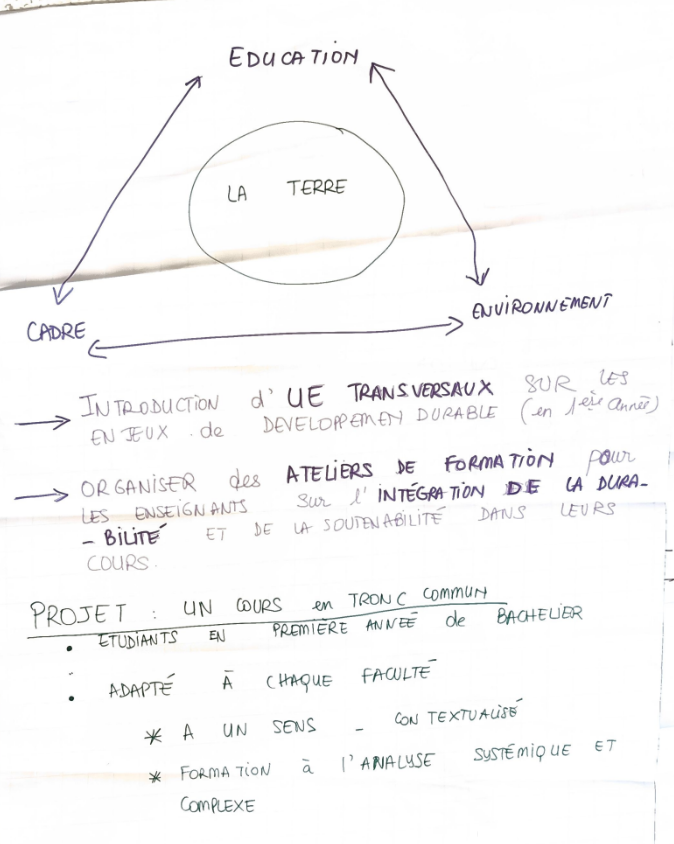 EDUCATION
LA TERRE
CADRE
ENVIRONNEMENT
INTRODUCTION d' UE TRANSVERSAUX SUR LES
ENJEUX de DEVELOPPEMEN DURABLE (en 1ère année)
ORGANISER des ATELIERS DE FORMATION pour
LES ENSEIGNANTS sur l'INTÉGRATION DE LA DURA-
- BILITÉ ET DE LA SOUTENABILITÉ DANS LEURS
COURS.
PROJET : UN COURS en TRONC COMMUN
• ETUDIANTS EN PREMIÈRE ANNÉE de BACHELIER
• ADAPTÉ À CHAQUE FACULTÉ
* A UN SENS - CONTEXTUALISÉ
* FORMATION à l'ANALYSE SYSTÉMIQUE ET
COMPLEXE